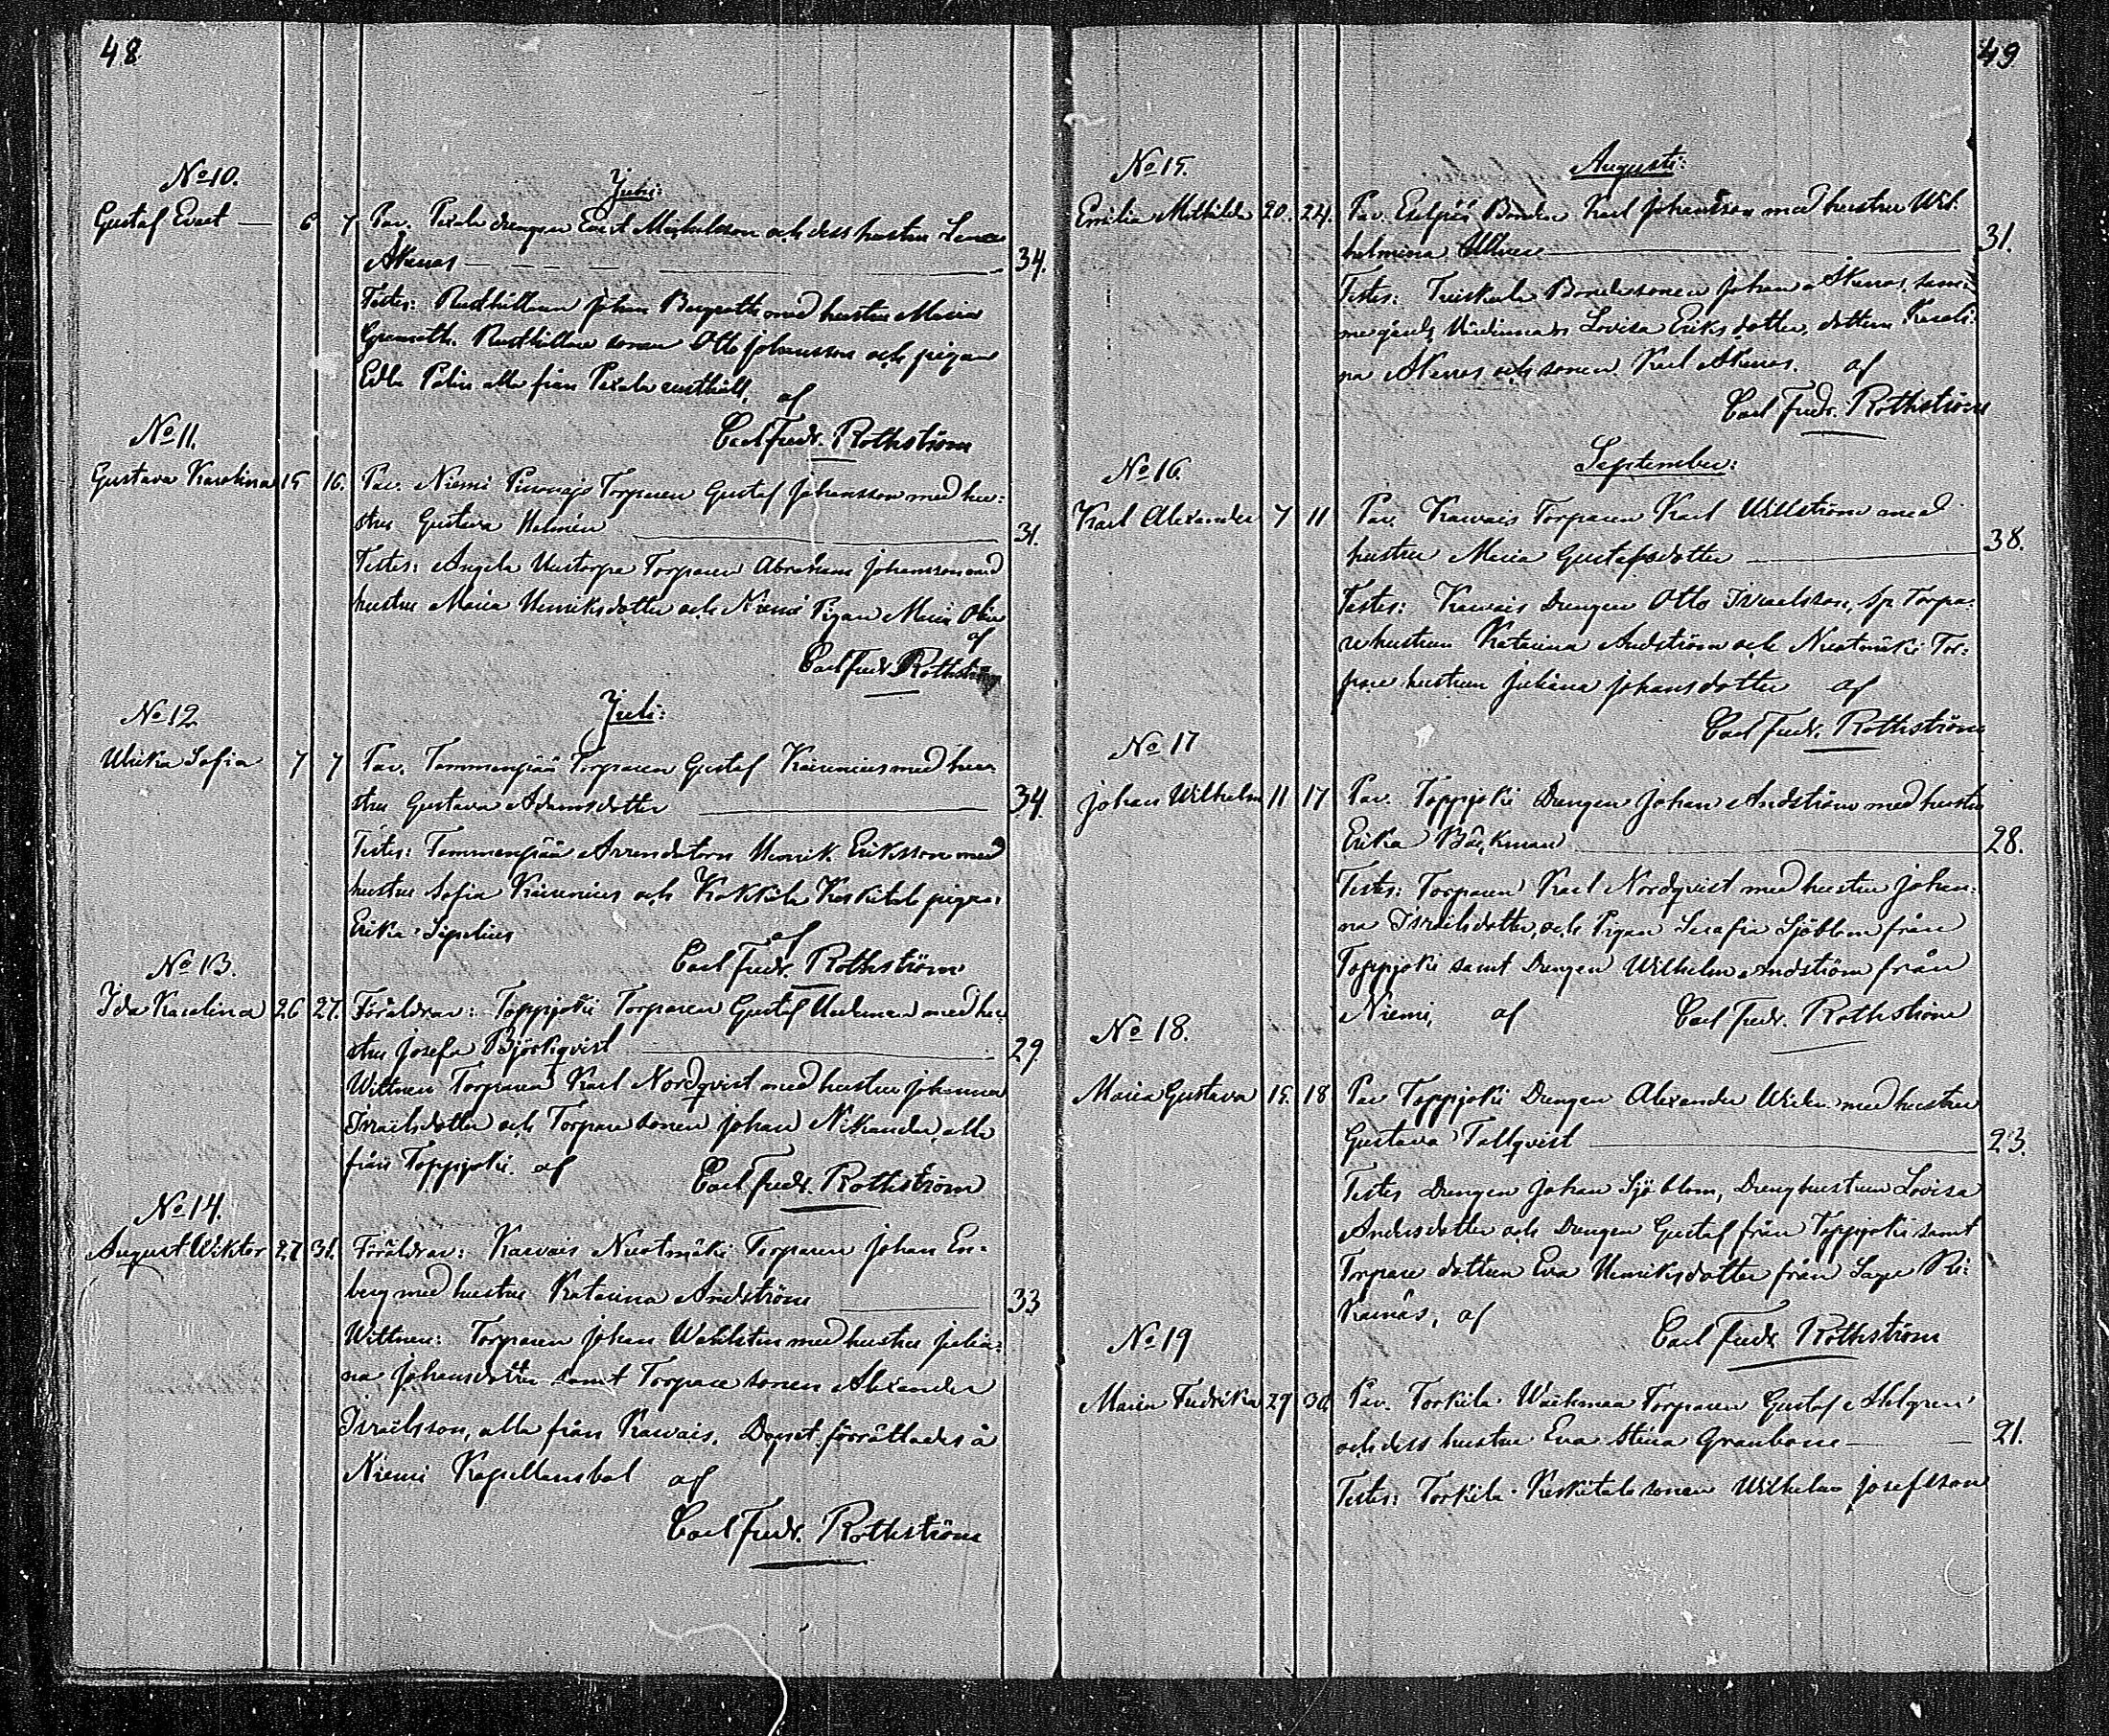 48
No 10.
Juni:
Gustaf Evert — 6 7 Par. Pexala drengen Evert Michelsson och dess hustru Lena
Åkerros — 34.
Testes: Rusthållaren Johan Bergroth med hustru Maria
Rusthållare sonen Otto Johansson och pigan
Edla Palin alla från Pexala rusthåll, af
Carl Fredr. Rothström
No 11.
Gustava Karolina 15 16. Par. Niemi Torparen Gustaf Johansson med hu-
stru Gustava Helmén — 31.
Testes: Angela Uustorpa Torparen Abraham Johansson med
hustru Maria Henriksdotter och Niemi Pigan Maria
af
Carl Fredr. Rothström
Juli:
No 12
Ulrika Sofia 7 7 Par. Tommenpää Torparen Gustaf Kairenius med hu-
stru Gustava Adamsdotter — 34.
Testes: Tommenpää Arrendatorn Henrik Eriksson med
hustru Sofia Kairenius och Kokkila Keskitalo pigan
Erika Sipelius
af
Carl Fredr. Rothström
No 13.
Ida Karolina 26 27. Föräldrar: Toppjoki Torparen Gustaf med hu-
stru Josefa Björkqvist — 29.
Wittnen Torparen Karl Nordqvist med hustru Johanna
Israelsdotter och Torpare sonen Johan Nikander, alla
från Toppjoki. af Carl Fredr. Rothström
No 14.
August Wiktor 27 31. Föräldrar: Kavais Nuotmäki Torparen Johan En-
berg med hustru Katarina Andström — 33
Wittnen: Torparen Johan Wahlsten med hustru Julia-
na Johansdotter samt Torpare sonen Alexander
Israelsson, alla från Kavais. Dopet förrättades å
Niemi Kapellansbol af
Carl Fredr. Rothström
49
No 15.
Augusti:
Emilia Mathilda 20. 24. Par. Eselpää Bonden Karl Johansson med hustru Wil-
helmina — 31.
Testes: Bondesonen Johan Åkerros, sam-
ma gårds Värdinnan Lovisa Eriksdotter, dottern Karoli-
na Åkerros och sonen Karl Åkerros. af
Carl Fredr. Rothström
September:
No 16.
Karl Alexander 7 11 Par. Kavais Torparen Karl Willström med
hustru Maria Gustafsdotter — 38.
Testes: Kavais Drengen Otto Israelsson, Sp. Torpa-
rehustrun Katarina Andström och Nuotmäki Tor-
pare hustrun Juliana Johansdotter af
Carl Fredr. Rothström
No 17
Johan Wilhelm 11 17 Par. Toppjoki Drengen Johan Andström med hustru
Erika Bäckman — 28.
Testes: Torparen Karl Nordqvist med hustru Johan-
na Israelsdotter, och Pigan Serafia Sjöblom från
Toppjoki samt Drengen Wilhelm Andström från
Niemi, af Carl Fredr. Rothström
No 18.
Maria Gustava 15. 18 Par Toppjoki Drengen Alexander med hustru
Gustava Tallqvist — 23.
Testes Drengen Johan Sjöblom, Dreng hustrun Lovisa
Andersdotter och Drengen Gustaf från Toppjoki samt
Torpare dottern Eva Henriksdotter från
af Carl Fredr. Rothström
No 19
Maria Fredrika 29 30. Par. Torkila Waihmaa Torparen Gustaf Ahlgren
och dess hustru Eva Stina Granbom — 21.
Testes: Torkila Keskitalo sonen Wilhelm Josefsson